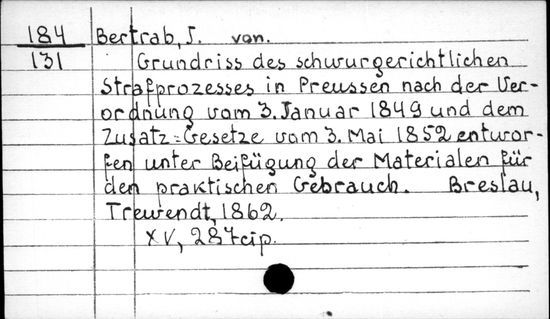 184 Bertrab, J. von.
131 Grundriss des schwurgerichtlichen
Strafprozesses in Preussen nach der Ver-
ordnung vom 3. Januar 1849 und dem
Zusatz=Gesetze vom 3. Mai 1852 entwor-
fen unter Beifügung der Materialen für
den praktischen Gebrauch. Breslau,
Trewendt, 1862.
XV, 287 cip.